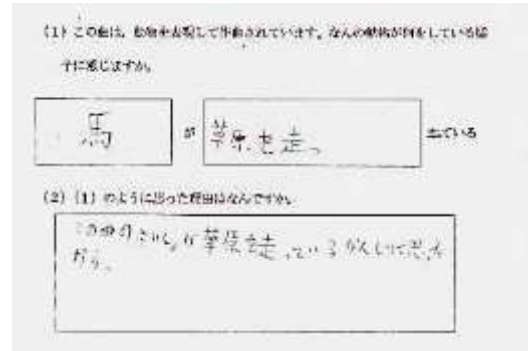 (1) この曲は、動物を表現して作曲されています。なんの動物が何をしている様
子に感じますか。
馬 が 草原を走っ ている
(2) (1) のように思った理由はなんですか。
この曲の が草原を走っているかんじって思った
から。